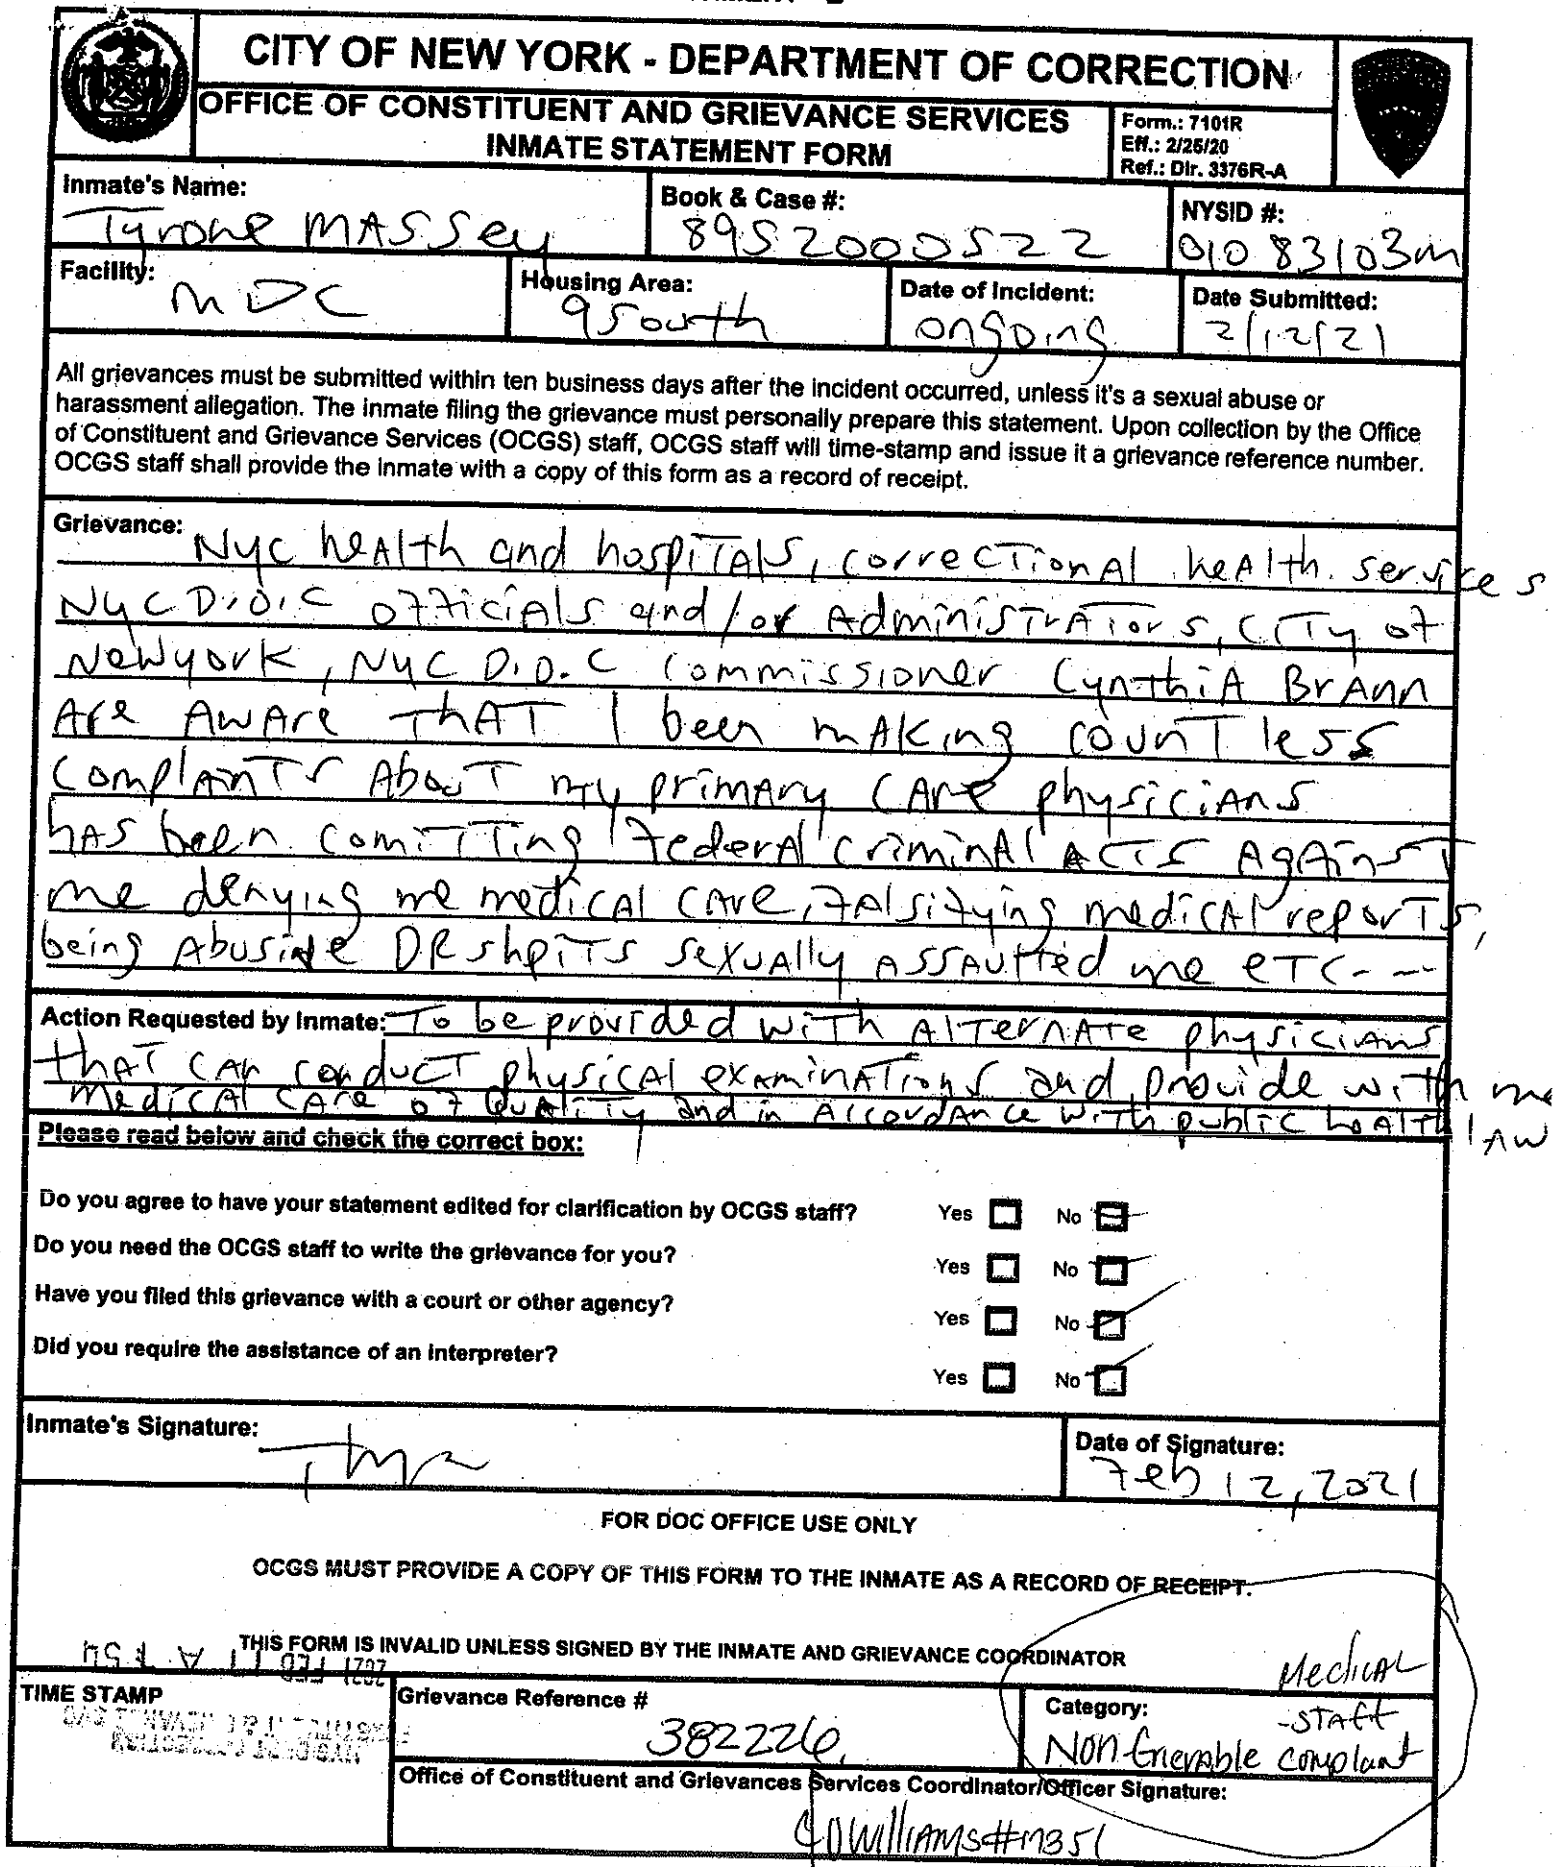 CITY OF NEW YORK - DEPARTMENT OF CORRECTION
OFFICE OF CONSTITUENT AND GRIEVANCE SERVICES
INMATE STATEMENT FORM
Form.: 7101R
Eff.: 2/25/20
Ref.: Dir. 3376R-A
Inmate's Name:
Tyrone MASSey
Book & Case #:
8952000522
NYSID #:
01083103m
Facility:
MDC
Housing Area:
9South
Date of Incident:
ongoing
Date Submitted:
2/12/21
All grievances must be submitted within ten business days after the incident occurred, unless it's a sexual abuse or
harassment allegation. The inmate filing the grievance must personally prepare this statement. Upon collection by the Office
of Constituent and Grievance Services (OCGS) staff, OCGS staff will time-stamp and issue it a grievance reference number.
OCGS staff shall provide the inmate with a copy of this form as a record of receipt.
Grievance: Nyc heAlth and hospiTAls, correcTionAl heAlth services
NyC D.O.C officiAls and/or AdminisTrATors, CiTy of
Newyork, NyC D.O.C commissioner CynthiA BrAnn
Are AwAre ThAT I been mAking counTless
complAinTs AbouT my primAry CAre physiciAns
hAS been comiTTing FederAl criminAl ACTS AgAinsT
me denying me medicAl cAre, fAlsifying medicAl reporTs,
being Abusive DR shpiTs sexuAlly ASSAulted me eTC---
Action Requested by Inmate: To be provided wiTh AlTernATe physiciAns
thAT CAn conducT physicAl exAminATions and provide with me
medicAl CAre of QuAliTy and in AccordAnce with public heAlth lAw
Please read below and check the correct box:
Do you agree to have your statement edited for clarification by OCGS staff? Yes No
Do you need the OCGS staff to write the grievance for you? Yes No
Have you filed this grievance with a court or other agency? Yes No
Did you require the assistance of an interpreter? Yes No
Inmate's Signature:
Date of Signature:
Feb 12, 2021
FOR DOC OFFICE USE ONLY
OCGS MUST PROVIDE A COPY OF THIS FORM TO THE INMATE AS A RECORD OF RECEIPT.
THIS FORM IS INVALID UNLESS SIGNED BY THE INMATE AND GRIEVANCE COORDINATOR
2021 FEB 17 A 7:54
TIME STAMP
Grievance Reference #
382226
Category:
Medical
-Staff
Non Grievable complant
Office of Constituent and Grievances Services Coordinator/Officer Signature:
CO Williams #17351